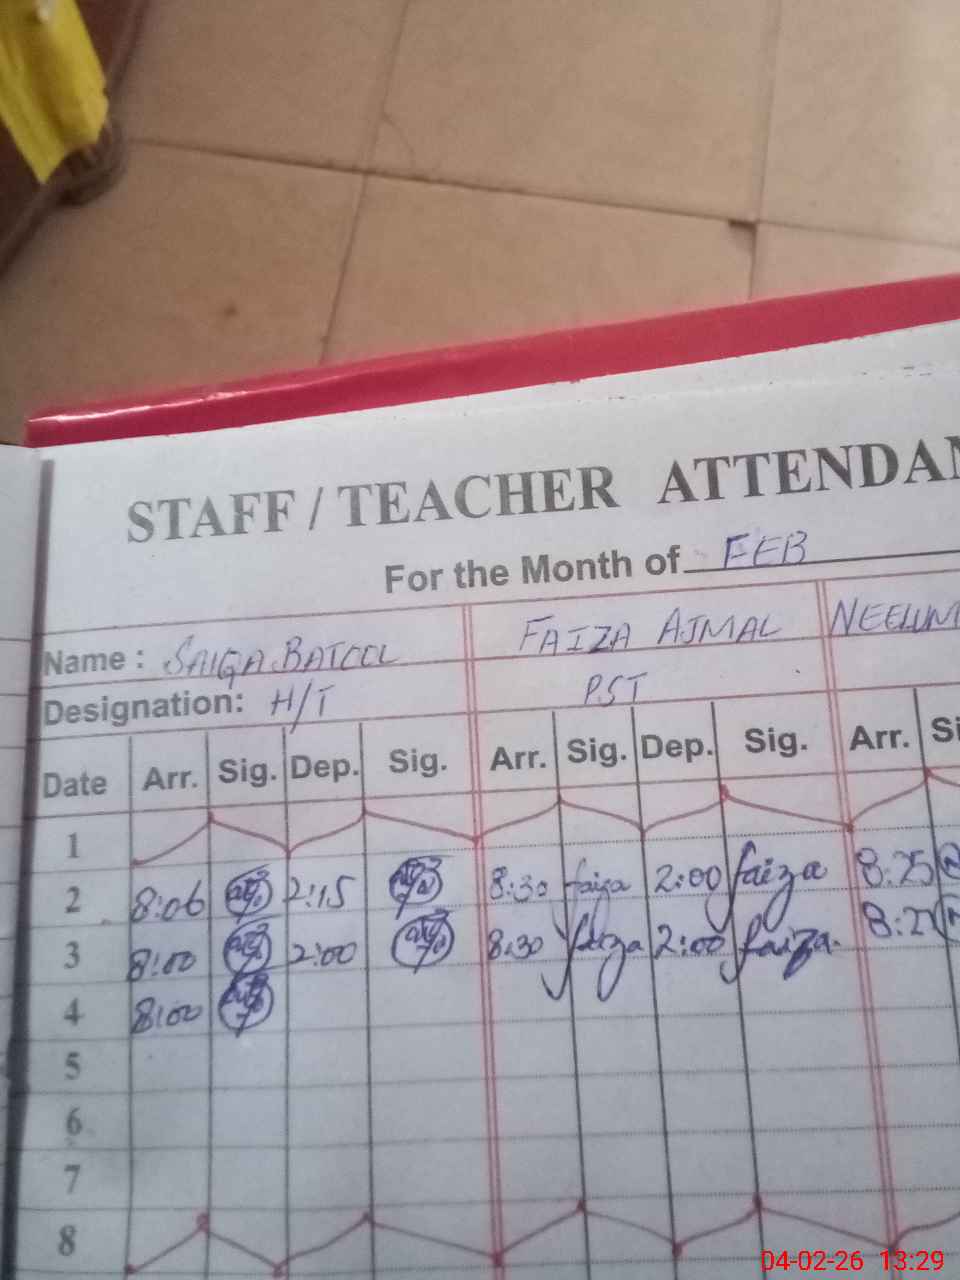 STAFF / TEACHER ATTENDAN
For the Month of FEB
Name : SAIQA BATOOL FAIZA AJMAL NEELUM
Designation: H/T PST
Date Arr. Sig. Dep. Sig. Arr. Sig. Dep. Sig. Arr. Si
1
2 8:06 2:15 8:30 faiza 2:00 faiza 8:25
3 8:00 2:00 8:30 faiza 2:00 faiza. 8:2
4 8:00
5
6
7
8
04-02-26 13:29